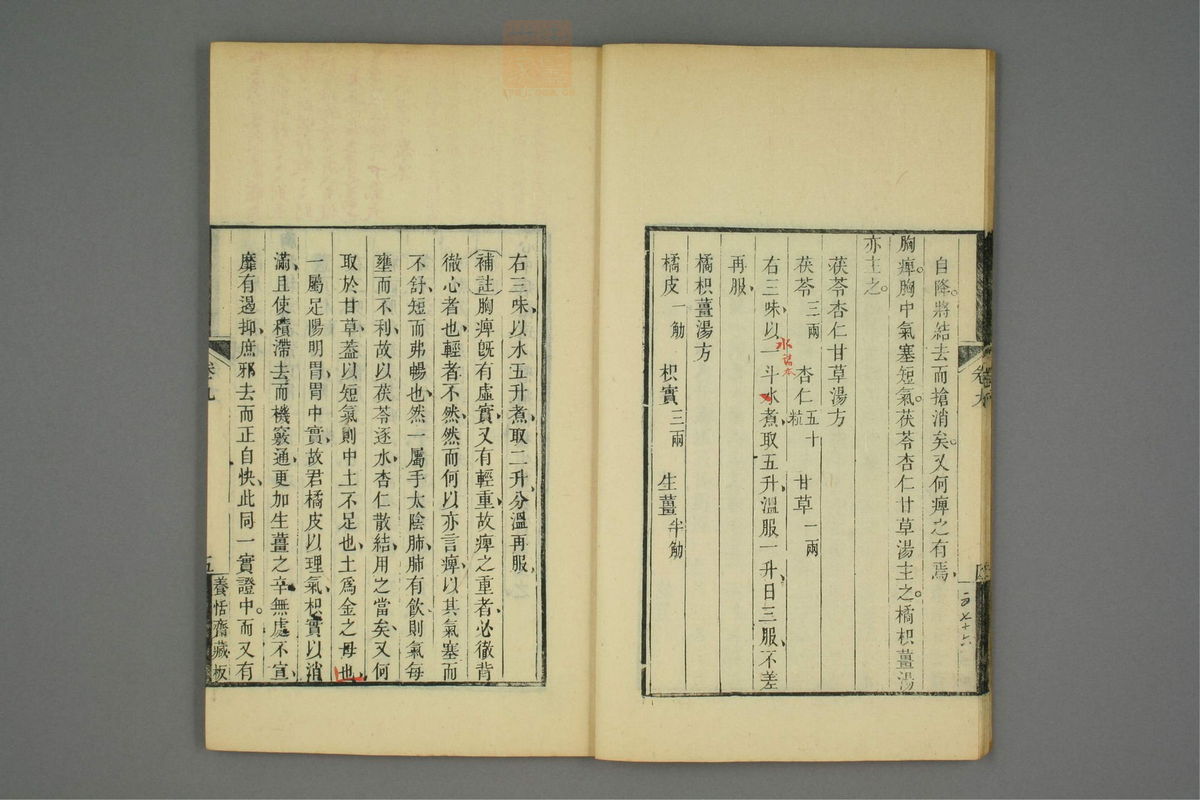 自降將結去而搶消矣又何痺之有焉
胸痺胸中氣塞短氣茯苓杏仁甘草湯主之橘枳薑湯
亦主之
茯苓杏仁甘草湯方
茯苓三兩 杏仁五十粒 甘草一兩
右三味以一斗水煮取五升溫服一升日三服不差
水
再服
橘枳薑湯方
橘皮一觔 枳實三兩 生薑半觔
卷九
右三味以水五升煮取二升分溫再服
補註胸痺旣有虛實又有輕重故痺之重者必徹背
徹心者也輕者不然然而何以亦言痺以其氣塞而
不舒短而弗暢也然一屬手太陰肺肺有飲則氣每
壅而不利故以茯苓逐水杏仁散結用之當矣又何
取於甘草葢以短氣則中土不足也土爲金之母也
一屬足陽明胃胃中實故君橘皮以理氣枳實以消
滿且使積滯去而機竅通更加生薑之辛無處不宣
靡有遏抑庶邪去而正自快此同一實證中而又有
卷九
五
養恬齋藏板